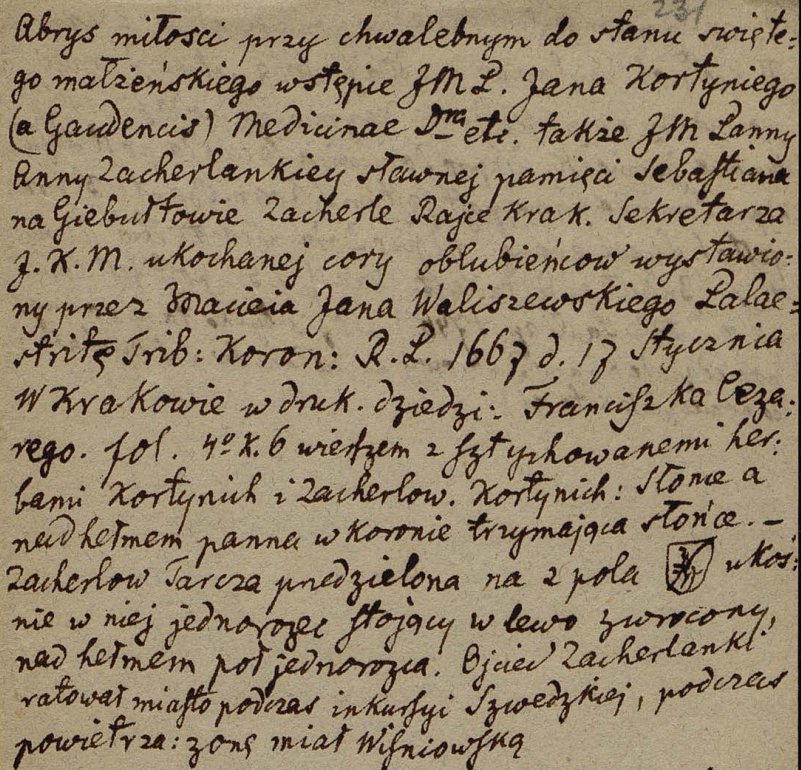 231
Abrys miłosci przy chwalebnym do stanu swięte=
go małżeńskiego wstępie JMP. Jana Kortyniego
(a Gaudencis) Medicinae Dra etc. także JM Panny
Anny Zacherlankiey sławnej pamięci Sebastiana
na Giebułtowie Zacherle Rajce Krak. Sekretarza
J. K. M. ukochanej cory oblubieńcow wystawio=
ny przez Macieia Jana Waliszewskiego Palae=
stritę Trib: Koron: R. P. 1667 d. 17 Stycznia
W Krakowie w druk. dziedzi: Franciszka Ceza:
rego. fol. 4º k. 6 wierszem z sztychowanemi her:
bami Kortynich i Zacherlow. Kortynich: Słonce a
nad hełmem panna w koronie trzymająca słońce. –
Zacherlow Tarcza przedzielona na 2 pola ukoś:
nie w niej jednorozec stojący w lewo zwrocony,
nad hełmem poł jednorozca. Ojciec Zacherlanki
ratował miasto podczas inkursyi Szwedzkiej, podczas
powietrza: zonę miał Wiśniowską